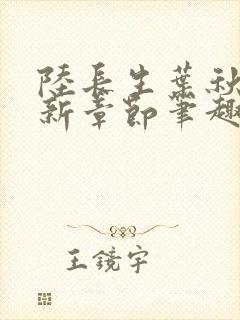 陸長生葉秋
新章節筆趣
王鏡宇